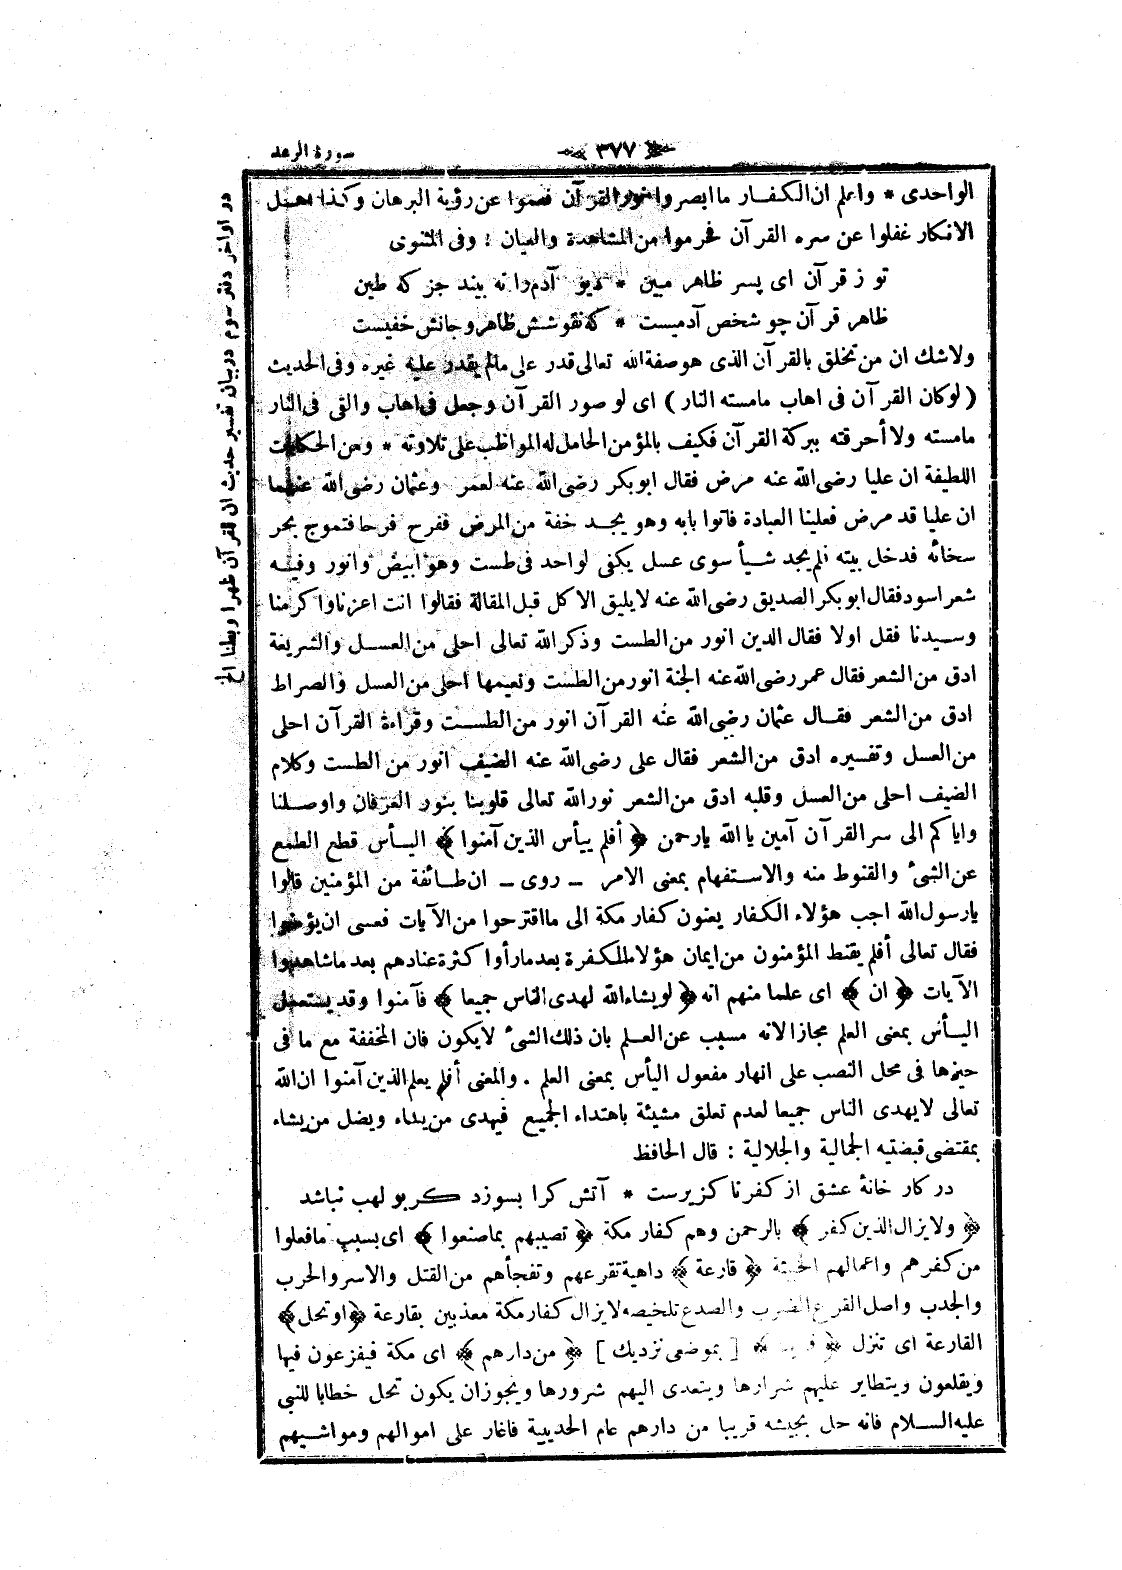 سورة الرعد
﴿ ٣٧٧ ﴾
الواحدى * واعلم ان الكفار ما ابصروا نور القرآن فعموا عن رؤية البرهان وكذا اهل
الانكار غفلوا عن سره القرآن فحرموا من المشاهدة والعيان : وفى المثنوى
تو ز قرآن اى پسر ظاهر مبين * ديو آدم را نه بيند جز كه طين
ظاهر قرآن چو شخص آدميست * كه نقوشش ظاهر وجانش خفيست
ولاشك ان من تخلق بالقرآن الذى هو صفة الله تعالى قدر على مالم يقدر عليه غيره وفى الحديث
( لو كان القرآن فى اهاب مامسته النار ) اى لو صور القرآن وجعل فى اهاب والقى فى النار
مامسته ولا أحرقته ببركة القرآن فكيف بالمؤمن الحامل له المواظب على تلاوته * ومن الحكايات
اللطيفة ان عليا رضى الله عنه مرض فقال ابوبكر رضى الله عنه لعمر وعثمان رضى الله عنهما
ان عليا قد مرض فعلينا العيادة فاتوا بابه وهو يجد خفة من المرض ففرح فرحا فتموج بحر
سخائه فدخل بيته فلم يجد شيأ سوى عسل يكفى لواحد فى طست وهو ابيض وانور وفيه
شعر اسود فقال ابوبكر الصديق رضى الله عنه لا يليق الاكل قبل المقالة فقالوا انت اعزنا واكرمنا
وسيدنا فقل اولا فقال الدين انور من الطست وذكر الله تعالى احلى من العسل والشريعة
ادق من الشعر فقال عمر رضى الله عنه الجنة انور من الطست ونعيمها احلى من العسل والصراط
ادق من الشعر فقال عثمان رضى الله عنه القرآن انور من الطست وقراءة القرآن احلى
من العسل وتفسيره ادق من الشعر فقال على رضى الله عنه الضيف انور من الطست وكلام
الضيف احلى من العسل وقلبه ادق من الشعر نور الله تعالى قلوبنا بنور العرفان واوصلنا
واياكم الى سر القرآن آمين يا الله يارحمن ﴿ أفلم ييأس الذين آمنوا ﴾ اليأس قطع الطمع
عن الشئ والقنوط منه والاستفهام بمعنى الامر – روى – ان طائفة من المؤمنين قالوا
يارسول الله اجب هؤلاء الكفار يعنون كفار مكة الى ما اقترحوا من الآيات فعسى ان يؤمنوا
فقال تعالى أفلم يقنط المؤمنون من ايمان هؤلاء الكفرة بعد مارأوا كثرة عنادهم بعد ماشاهدوا
الآيات ﴿ ان ﴾ اى علما منهم انه ﴿ لو يشاء الله لهدى الناس جميعا ﴾ فآمنوا وقد يستعمل
اليأس بمعنى العلم مجازا لانه مسبب عن العلم بان ذلك الشئ لايكون فان المخففة مع ما فى
حيزها فى محل النصب على انها مفعول اليأس بمعنى العلم . والمعنى أفلم يعلم الذين آمنوا ان الله
تعالى لايهدى الناس جميعا لعدم تعلق مشيئة باهتداء الجميع فيهدى من يشاء ويضل من يشاء
بمقتضى قبضتيه الجمالية والجلالية : قال الحافظ
در كار خانهٔ عشق از كفر نا كزيرست * آتش كرا بسوزد كر بو لهب نباشد
﴿ ولايزال الذين كفر ﴾ بالرحمن وهم كفار مكة ﴿ تصيبهم بماصنعوا ﴾ اى بسبب مافعلوا
من كفرهم واعمالهم الخبيثة ﴿ قارعة ﴾ داهية تقرعهم وتفجأهم من القتل والاسر والحرب
والجدب واصل القرع الضرب والصدع تلخيصه لايزال كفار مكة معذبين بقارعة ﴿ او تحل ﴾
القارعة اى تنزل ﴿ قريبا ﴾ [ بموضعى نزديك ] ﴿ من دارهم ﴾ اى مكة فيفزعون فيها
ويقلعون ويتطاير عليهم شرارها ويتعدى اليهم شرورها ويجوز ان يكون تحل خطابا للنبى
عليه السلام فانه حل بجيشه قريبا من دارهم عام الحديبية فاغار على اموالهم ومواشيهم
در اواخر دفتر سوم در بيان تفسير حديث ان للقرآن ظهرا وبطنا الخ